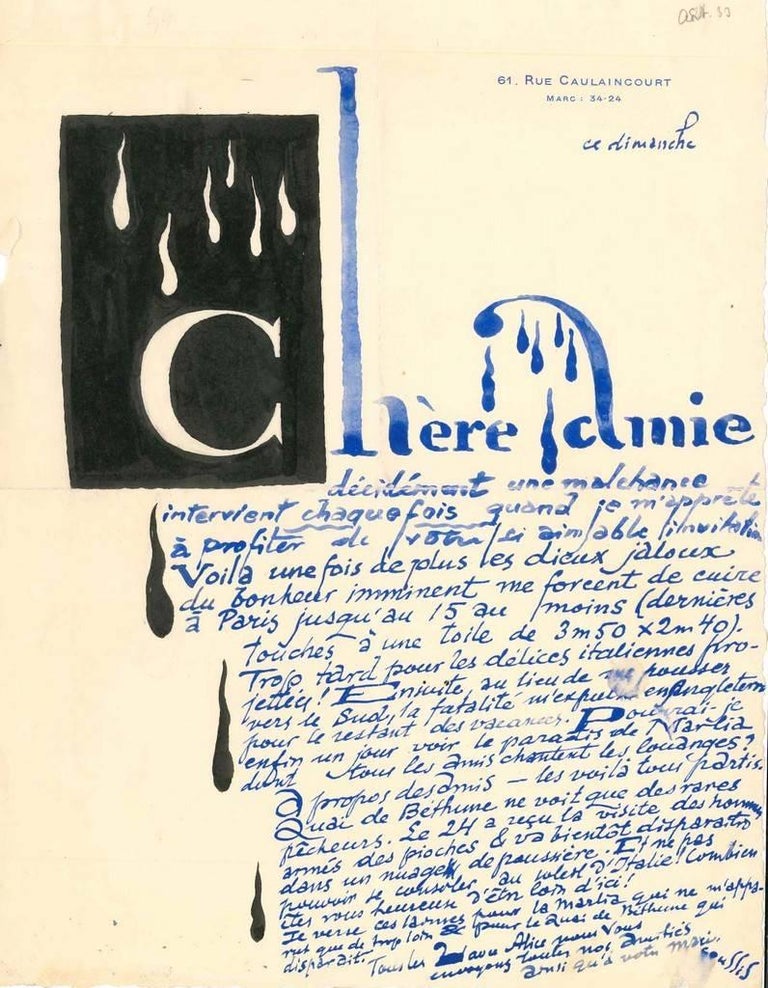 61, RUE CAULAINCOURT
MARC : 34-24
ce dimanche
Chère Amie
décidément une malchance
intervient chaque fois quand je m'apprête
à profiter de votre si aimable invitation
Voilà une fois de plus les dieux jaloux
du bonheur imminent me forcent de cuire
à Paris jusqu'au 15 au moins (dernières
touches à une toile de 3m50 x 2m40).
Trop tard pour les délices italiennes pro-
jettées! Ensuite, au lieu de me pousser
vers le Sud, la fatalité m'expulse en Angleterre
pour le restant des vacances. Pourrai-je
enfin un jour voir le paradis de Marlia
dont tous les amis chantent les louanges?
A propos des amis — les voilà tous partis.
Quai de Béthune ne voit que des rares
pêcheurs. Le 24 a reçu la visite des hommes
armés des pioches & va bientôt disparaître
dans un nuage de poussière. Et ne pas
pouvoir se consoler au soleil d'Italie! Combien
êtes vous heureuse d'être loin d'ici!
Je verse ces larmes pour la Marlia qui ne m'appa-
rait que de trop loin & pour le Quai de Béthune qui
disparait. Tous les 2 avec Alice nous vous
envoyons toutes nos amitiés
ainsi qu'à votre mari.